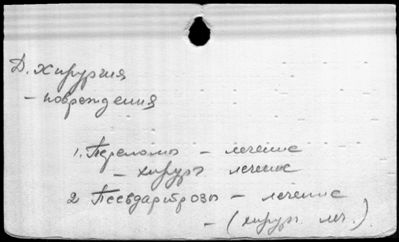 Д. Хирургия
- повреждения
1. Переломы - лечение
- хирург лечение
2 Псевдартрозы - лечение
- (хирург. леч.)